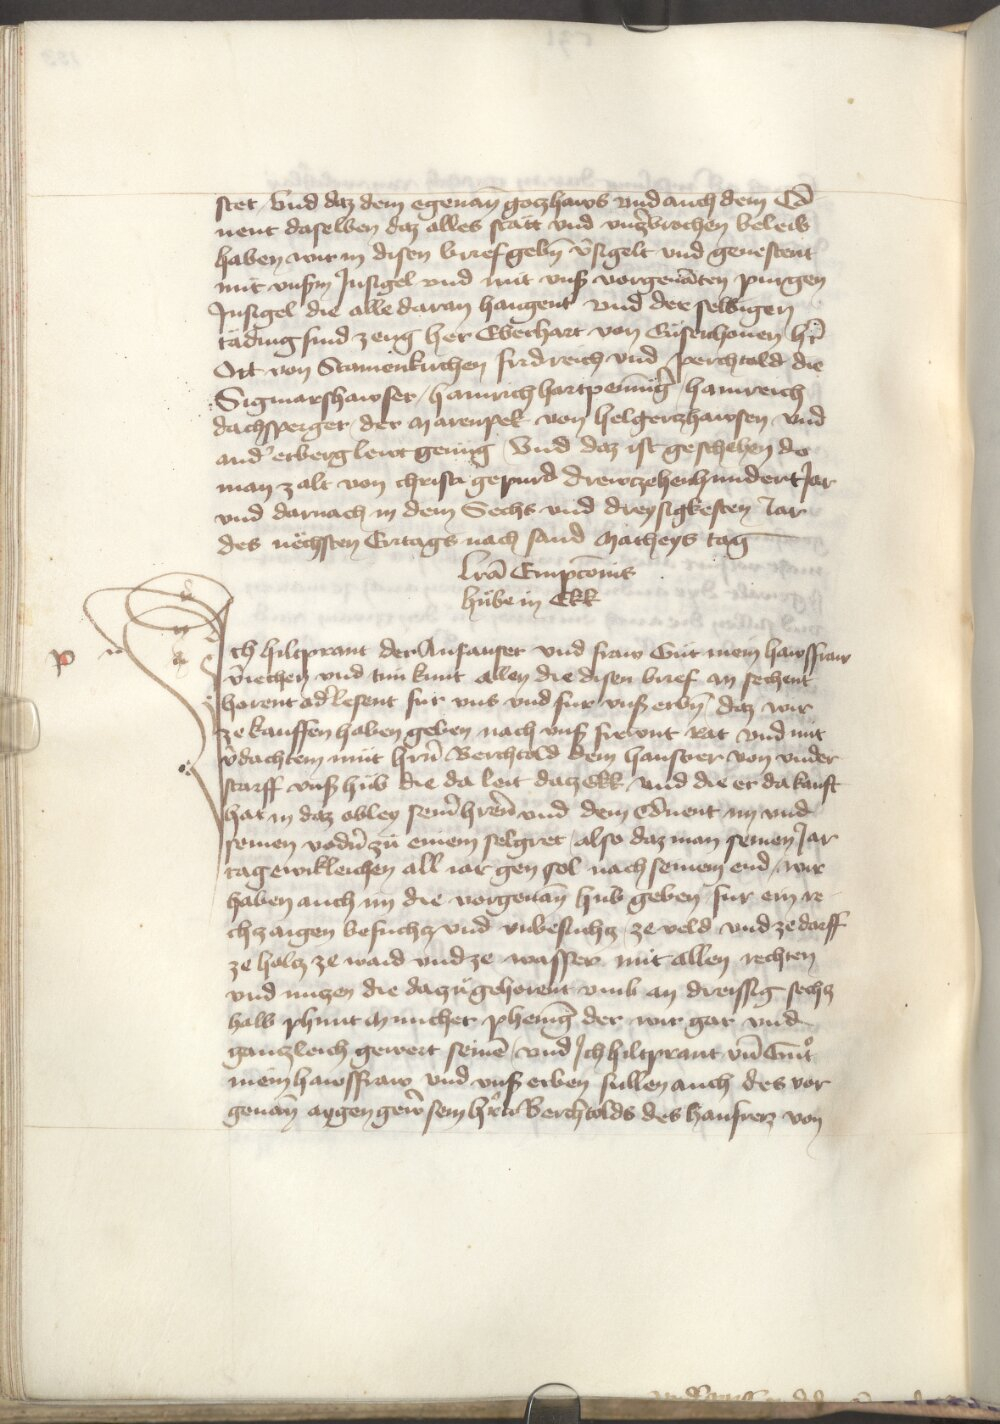 stet / Vnd daz dem egenañ gotzhaws vnd auch dem Cō
uent daselben daz alles statt vnd vnzerbrochen beleib
haben wir in disen brief gebñ v̄sigelt vnd geuestent
mit vnsm̄ Insigel vnd mit vnsz vorgenāten purgen
Insigel die alle daran hangent vnd der selbigen
täding sind zeug her Eberhart von hr̄
Ort von Stainenkirchen fridreich vnd perchtold die
Sigmarshawser / hainrich hartpenīg̃ / hainreich
dachsperger / der Marenpek von helgertzhawsen vnd
and' erberg lewt genüg / Vnd daz ist geschehen do
man zalt von christi gepurd drewczehenhundert Jar
vnd darnach in dem Sechs vnd dreysigkesten Iar
des nächsten Eritags nach sand Matheys tag
Lrā Empcōnis
hübe in Ekk
Ich hiltprant der vnd fraw Güt mein hawsfraw
v̄iechen vnd tun kunt allen die disen brief an sechent
horent od' lesent fur vns vnd fur vnsz erbñ / daz wir
ze kauffen haben geben nach vnsz frewnt Rat vnd mit
v̄dachtem müt hr̄n Berchtold dem von vnder
vnsz hüb die da leit datz Ekk / vnd die er da kauft
hat in daz obley seīn hrēn vnd dem Cōuent im vnd
seinen vodn̄ zü einem selgret / also daz man seinen Jar
tag ewikleichen all iar gen sol nach seinem end / wir
haben auch im die vorgenañ hub geben fur ein re
chz aigen besuchtz vnd vnbesuchtz ze veld vnd ze dorff
ze holtz ze waid vnd ze wasser mit allen rechten
vnd nutzen die dazü gehorent vmb an dreissig sechtz
halb phunt Municher phenig̃ der wir gar vnd
gantzleich gewert seinē / vnd Ich hiltprant vñ Gut
mein hawsfraw vnd vnsz erben sullen auch des vor
genañ aygen gew̄ sein hr̄n Berchtolds des von